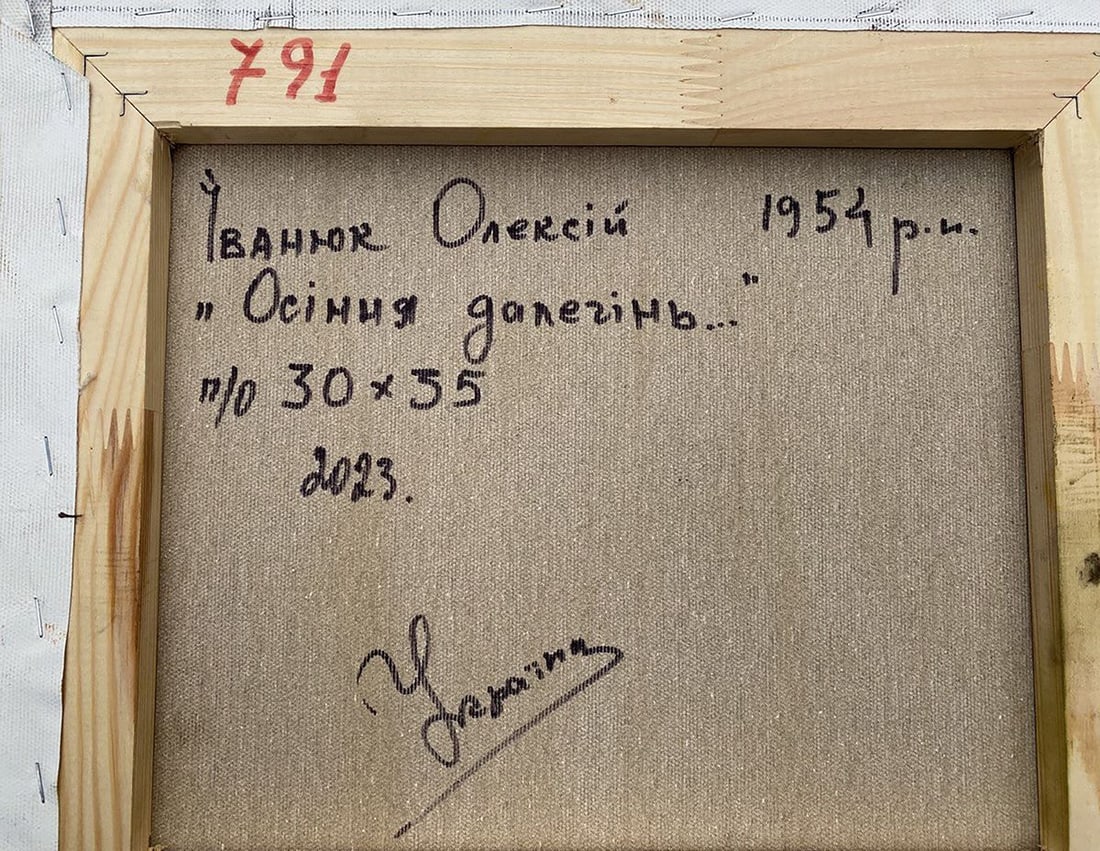 791
Іванюк Олексій 1954 р.н.
„Осіння далечінь..."
п/о 30 x 35
2023.
Україна